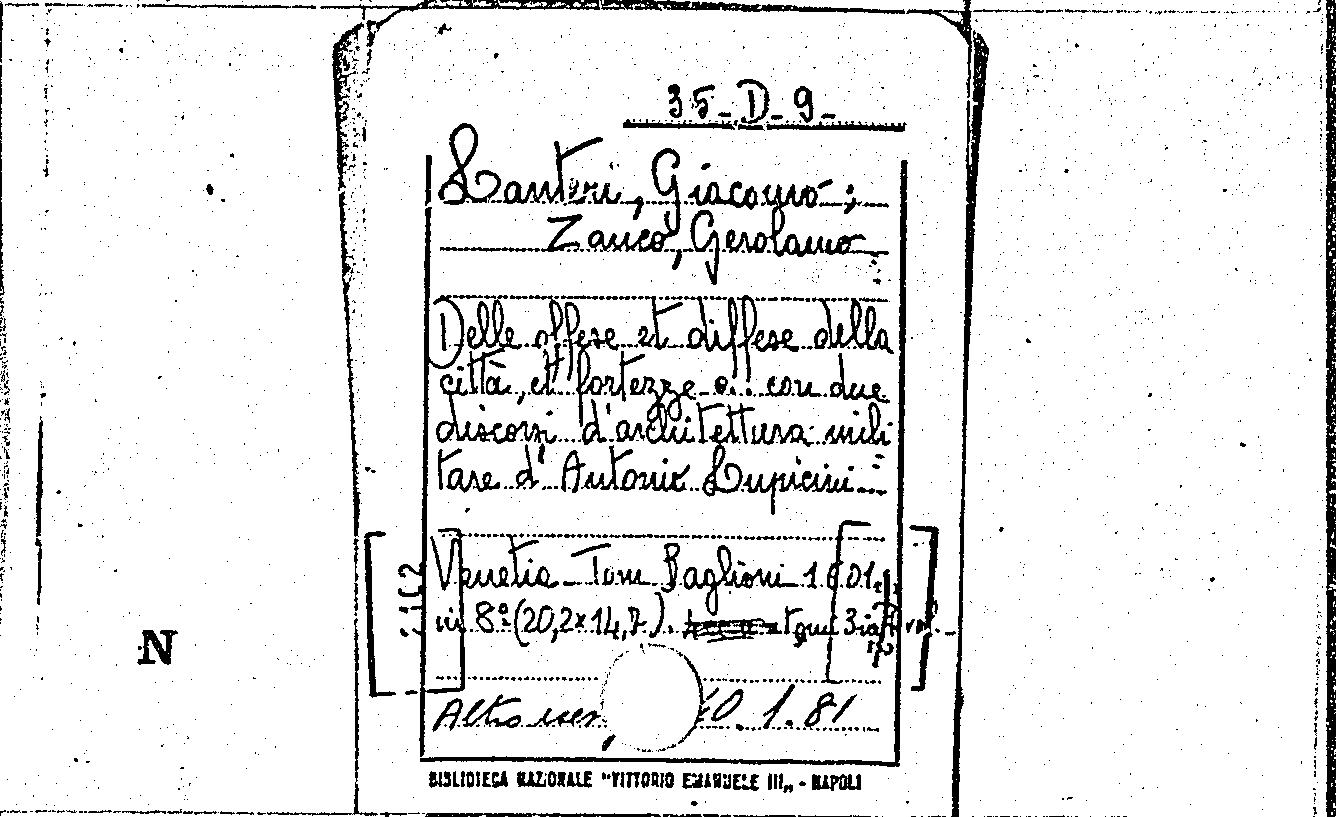 35-D-9-
Lanteri, Giacomo;
Zanco, Gerolamo
Delle offese et diffese della
città, et fortezze ... con due
discorsi d'architettura mili
tare d'Antonio Lupicini...
Venetia - Tom Baglioni 1601.
in 8º (20,2x14,7). tomi 3 in
Altro 0.1.81
BIBLIOTECA NAZIONALE "VITTORIO EMANUELE III„ - NAPOLI
N